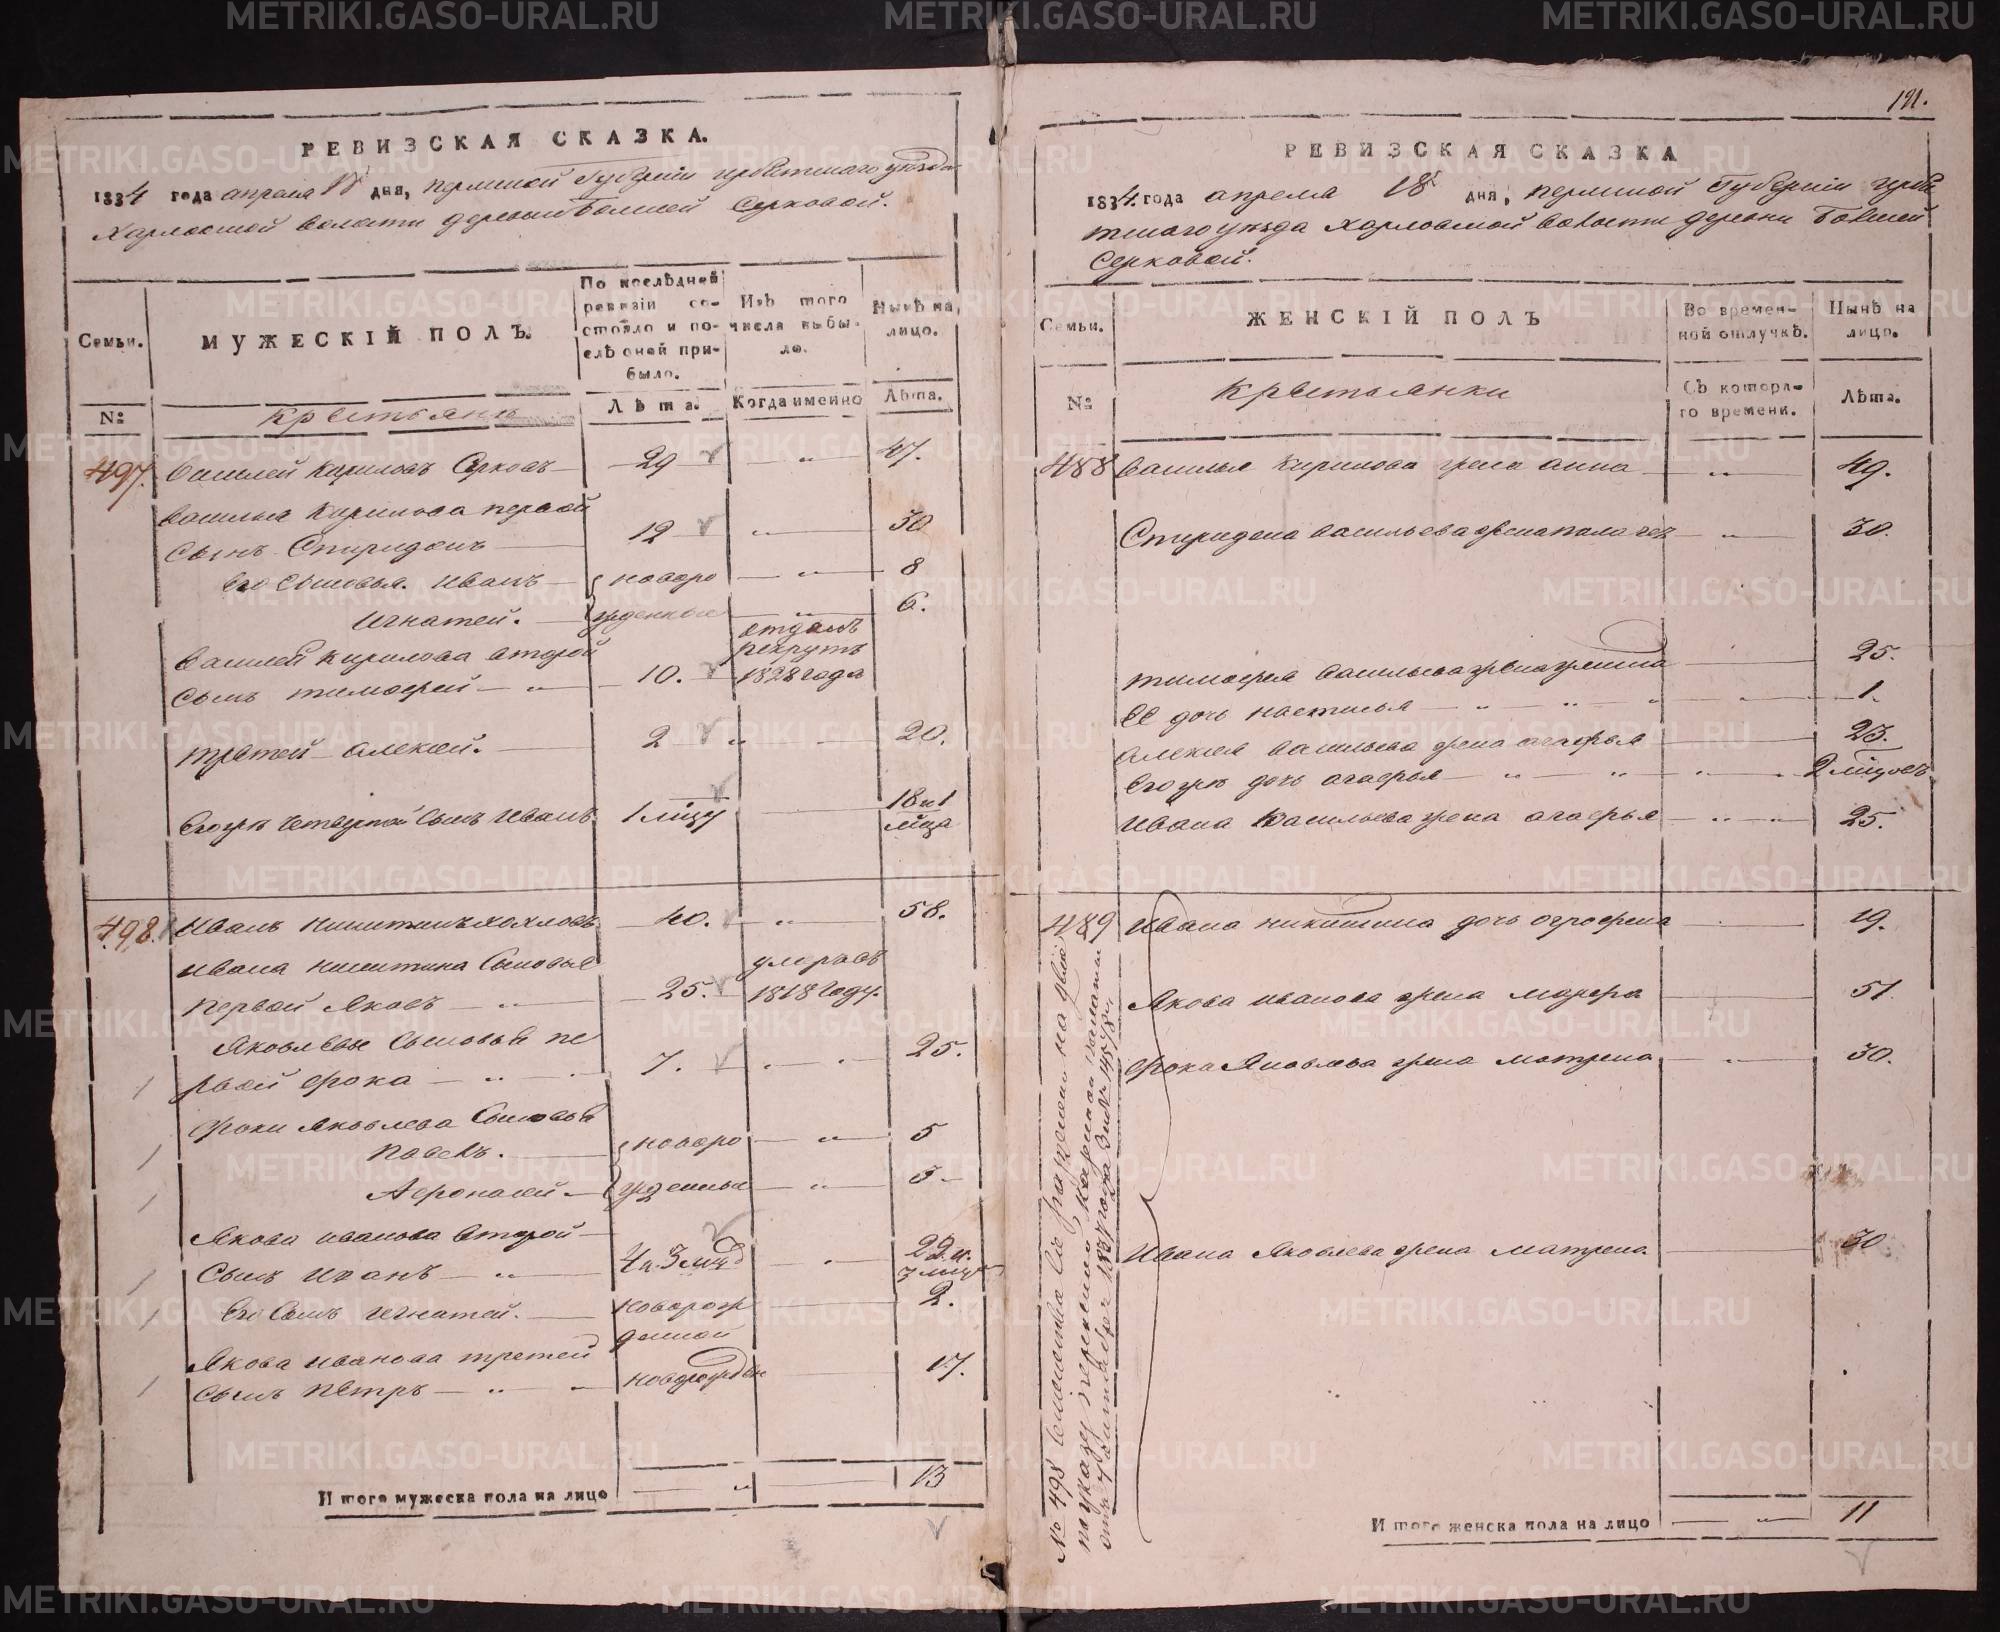 РЕВИЗСКАЯ СКАЗКА.
1834 года апреля 18 дня, пермской Губернии ирбитского уезда
Харловской волости деревни Большей Серковой.
Семьи.
МУЖЕСКІЙ ПОЛЪ.
По послѣдней ревизіи состояло и послѣ оной прибыло.
Изъ того числа выбыло.
Нынѣ на лицо.
№
Крестьяне
Лѣта.
Когда именно
Лѣта.
497. Василей Кириловъ Серковъ 29 „ 47.
Василья Кирилова первой
Сынъ Спиридонъ 12 „ 30
Его Сыновья. Иванъ новоро „ 8
Игнатей. жденные „ 6.
Василей Кирилова второй отданъ рекрутъ
Сынъ тимофей „ 10. 1828 года
третей Алексей. 2 „ 20.
Его же четвертой Сынъ Иванъ 1 мцу 18 и 1 мца
498. Иванъ Никитинъ Хохловъ 40. „ 58.
Ивана Никитина Сыновья умеръ въ
первой Яковъ „ 25. 1818 году.
Яковлевы Сыновья пе
рвой Фока „ 7. „ 25.
Фоки Яковлева Сыновья
Павелъ. новоро „ 5
Афонасей. жденные „ 5
Якова Иванова второй
Сынъ Иванъ „ 4 и 3 мцд „ 22 и 7 мицъ
Его Сынъ Игнатей. новорож 2.
денной
Якова Иванова третей
Сынъ Петръ „ новорожден 17.
Итого мужеска пола на лицо „ 13
121.
РЕВИЗСКАЯ СКАЗКА
1834. года апреля 18 дня, пермской Губернии ирби
тского уезда Харловской волости деревни Большей
Серковой.
Семьи.
ЖЕНСКІЙ ПОЛЪ
Во временной отлучкѣ.
Нынѣ на лицо.
№
Крестьянки
Съ котораго времени.
Лѣта.
488 Василья Кирилова жена Анна „ 49.
Спиридона Васильева жена палагея „ 30.
тимофея Васильева жена 25.
Её дочь настасья „ „ „ 1.
Алексея Васильева жена агафья 23.
Его же дочь агафья „ „ „ 2 мцовъ
Ивана Васильева жена агафья „ „ 25.
489 Ивана никитина дочь огрофена 19.
Якова иванова жена марфа 51.
Фока Яковлева жена матрена „ 30.
Ивана Яковлева жена матрена 30
№ 498 семейства
по указу пермской казенной палаты
Итого женска пола на лицо „ 11
METRIKI.GASO-URAL.RU